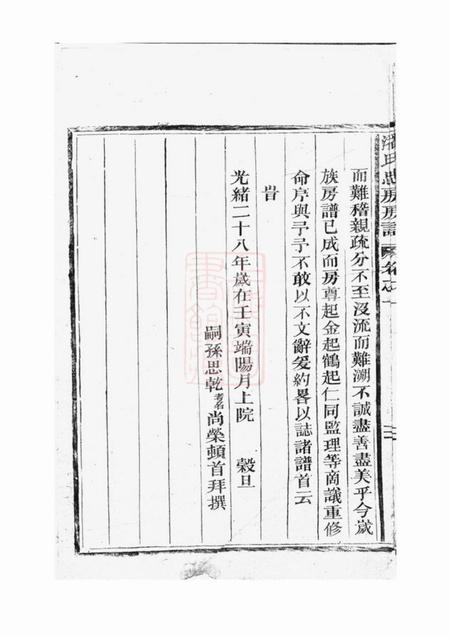 房房譜
而難稽親疏分不至沒流而難溯不誠盡善盡美乎今歲
族房譜已成而房尊起金起鶴起仁同監理等商議重修
命序與予予不敢以不文辭爰約畧以誌諸譜首云
旹
光緒二十八年歲在壬寅端陽月上院 穀旦
嗣孫思乾考名尚榮頓首拜撰